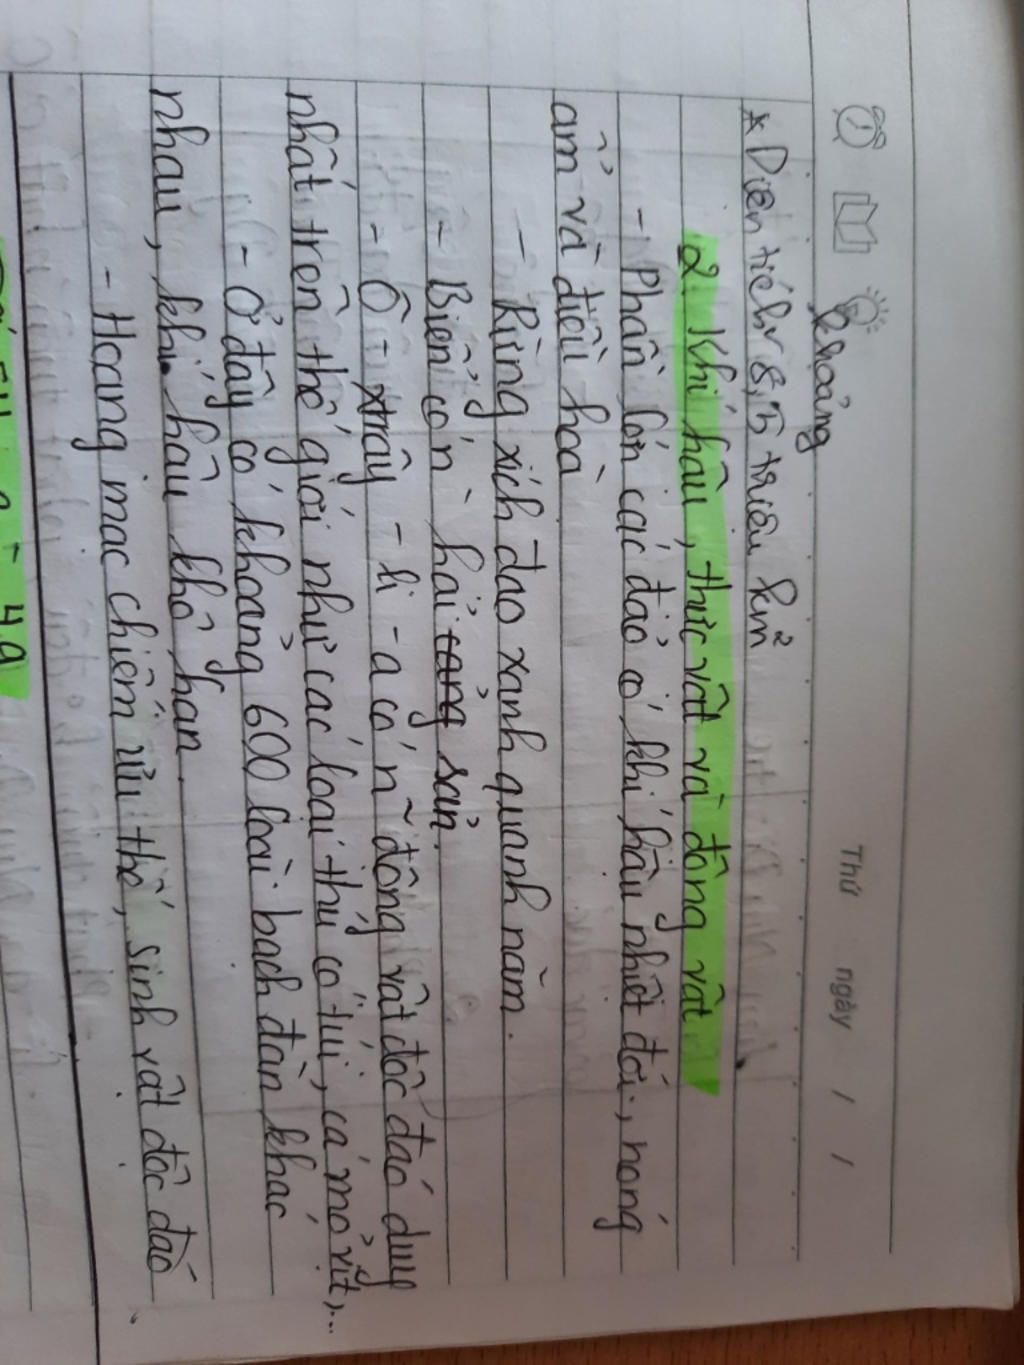 Thứ ngày / /
khoảng
* Diện tích 8,5 triệu km²
2. Khí hậu, thực vật và động vật
- Phần lớn các đảo có khí hậu nhiệt đới, nóng
ẩm và điều hoà
- Rừng xích đạo xanh quanh năm.
- Biển có n` hải sản.
- Ô-xtrây-li-a có n~ động vật độc đáo duy
nhất trên thế giới như các loài thú có túi, cá mỏ vịt,...
- Ở đây có khoảng 600 loài bạch đàn khác
nhau, khí hậu khô hạn.
- Hoang mạc chiếm ưu thế, sinh vật độc đáo